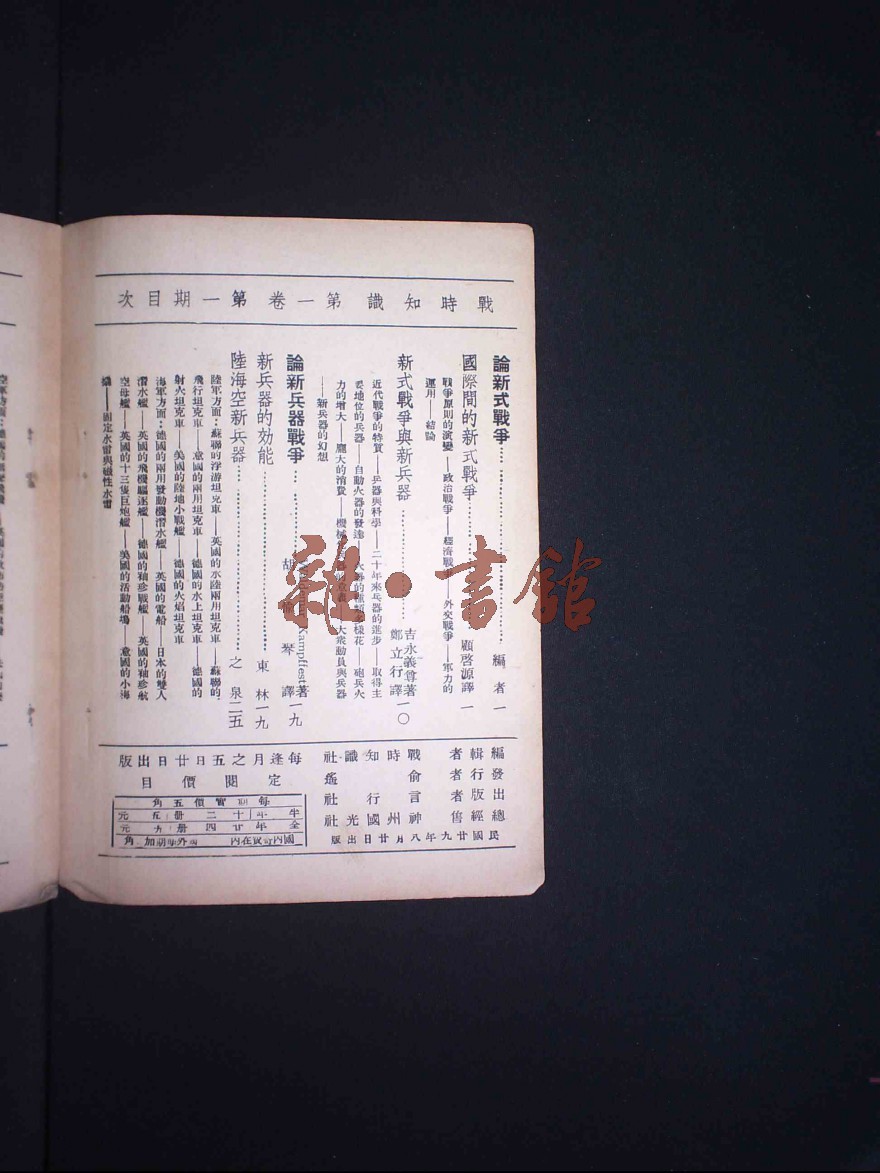 戰時知識第一卷第一期目次
論新式戰爭……編者 一
國際間的新式戰爭……顧啓源譯 一
戰爭原則的演變——政治戰爭——經濟戰爭——外交戰爭——軍力的
運用——結論
新式戰爭與新兵器……吉永義尊著 鄭立行譯 一〇
近代戰爭的特質——兵器與科學——二十年來兵器的進步——取得主
要地位的兵器——自動火器的發達——砲兵火
力的增大——龐大的消費——機械——大衆動員與兵器
——新兵器的幻想
論新兵器戰爭……Kampffest著 胡 琴譯 一九
新兵器的効能……東林 一九
陸海空新兵器……之泉 二五
陸軍方面：蘇聯的浮游坦克車——英國的水陸兩用坦克車——蘇聯的
飛行坦克車——意國的兩用坦克車——德國的水上坦克車——德國的
射火坦克車——美國的陸地小戰艦——德國的火焰坦克車
海軍方面：德國的兩用發動機潛水艦——英國的電船——日本的雙人
潛水艦——英國的飛機驅逐艦——德國的袖珍戰艦——英國的袖珍航
空母艦——英國的十三隻巨炮艦——美國的活動船塢——意國的小海
——固定水雷與磁性水雷
編輯者 戰時知識社
發行者 俞遙
出版者 言行社
總經售 神州國光社
民國廿九年八月廿日出版
每逢月之五日廿日出版
定閱價目
每期實價五角
半年十二册五元
全年廿四册九元
國內寄費在內 國外每期加 角
雜·書館